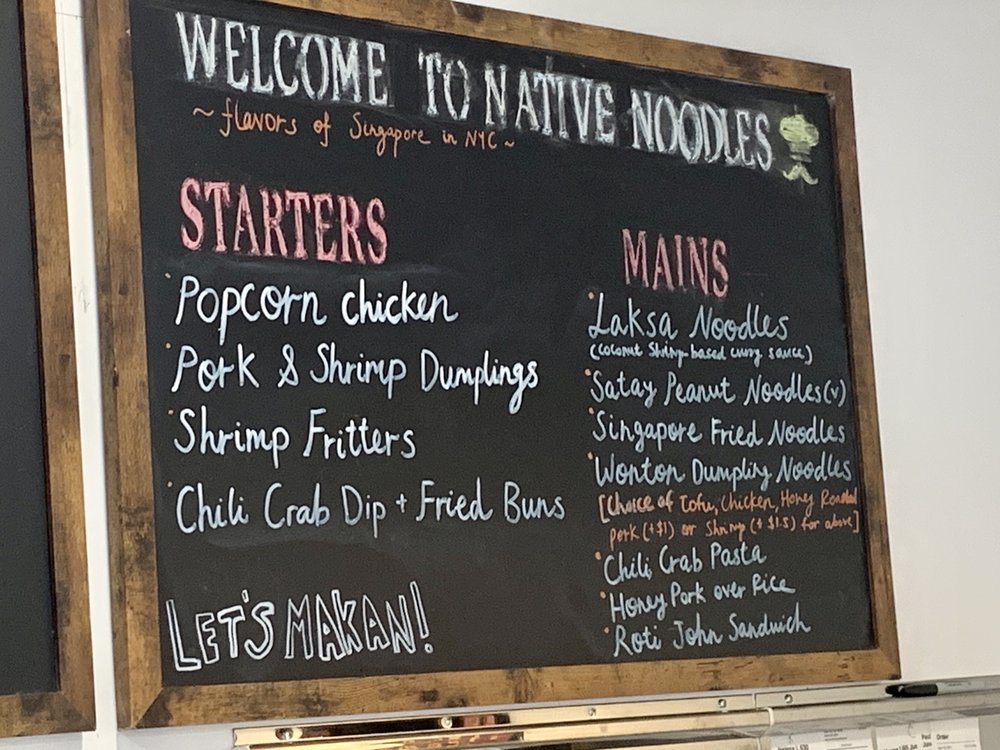 WELCOME TO NATIVE NOODLES
~ flavors of Singapore in NYC ~
STARTERS
Popcorn chicken
Pork & Shrimp Dumplings
Shrimp Fritters
Chili Crab Dip + Fried Buns
LET'S MAKAN!
MAINS
Laksa Noodles
(coconut Shrimp-based curry sauce)
Satay Peanut Noodles (v)
Singapore Fried Noodles
Wonton Dumpling Noodles
[Choice of Tofu, Chicken, Honey Roasted
pork (+$1) or Shrimp (+ $1.5) for above]
Chili Crab Pasta
Honey Pork over Rice
Roti John Sandwich